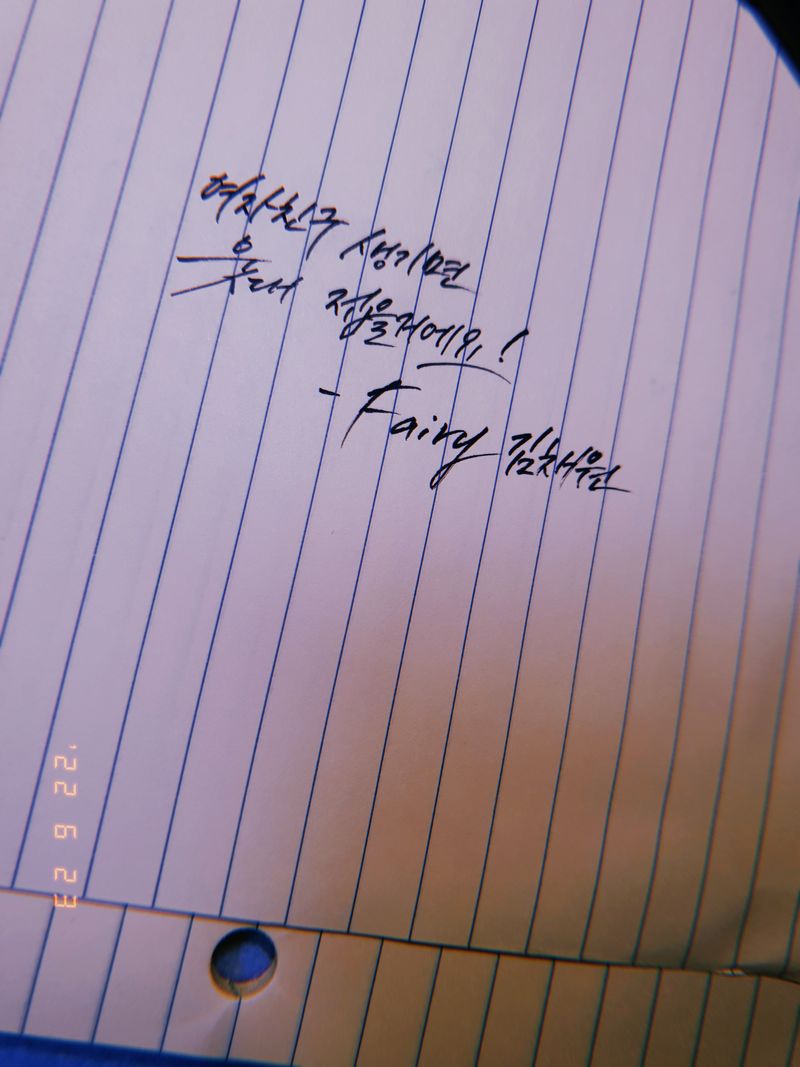 여자친구 생기면
웃대 접을거에요!
- Fairy 김채원
'22 6 23